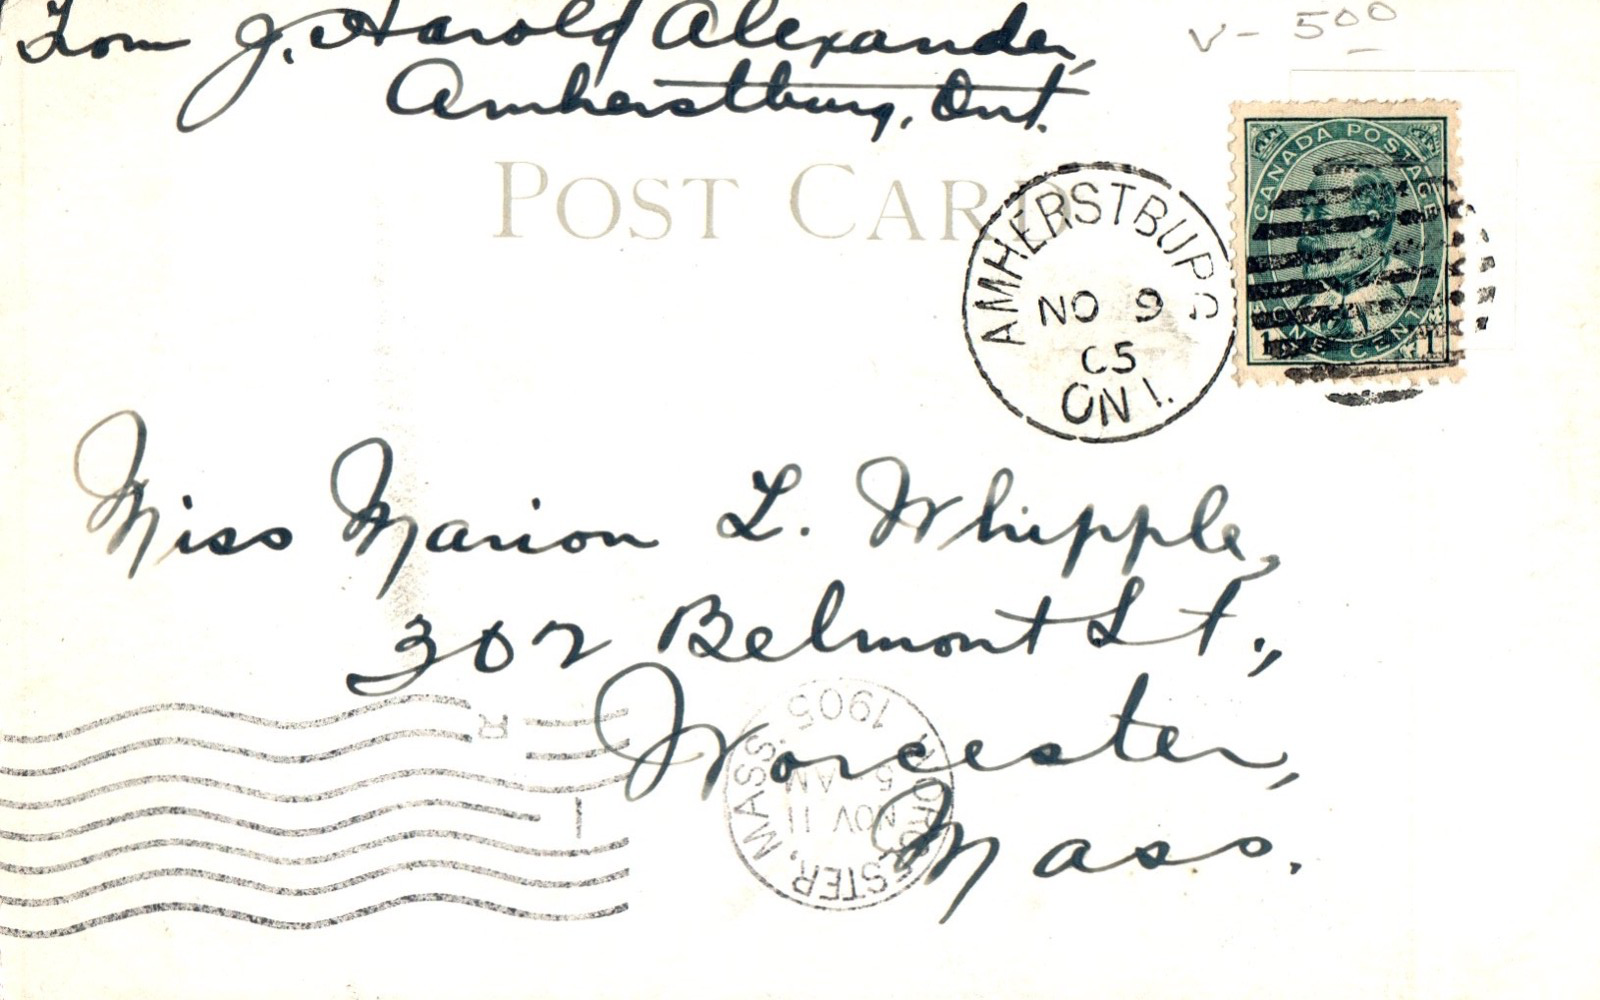 From J. Harold Alexander,
Amherstburg, Ont.
V- 5⁰⁰
POST CARD
CANADA POSTAGE
1 CENTS 1
AMHERSTBURG
NO 9
05
ONT.
Miss Marion L. Whipple,
302 Belmont St.,
Worcester,
Mass.
R
1
WORCESTER, MASS.
NOV 11
5-AM
1905